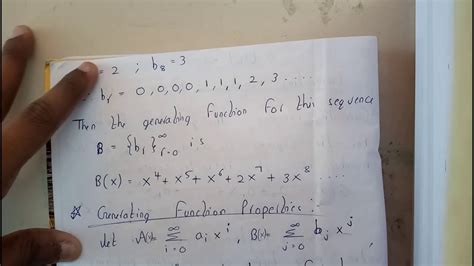 = 2 ; b₈ = 3
bᵣ = 0, 0, 0, 0, 1, 1, 1, 2, 3 ....
Then the generating Function For this sequence
B = {bᵣ}^∞_{r=0} is
B(x) = x⁴ + x⁵ + x⁶ + 2x⁷ + 3x⁸ .....
☆ Generating Function Properties :
let A(x)= ∑^∞_{i=0} aᵢ xⁱ , B(x)= ∑^∞_{j=0} bⱼ xʲ